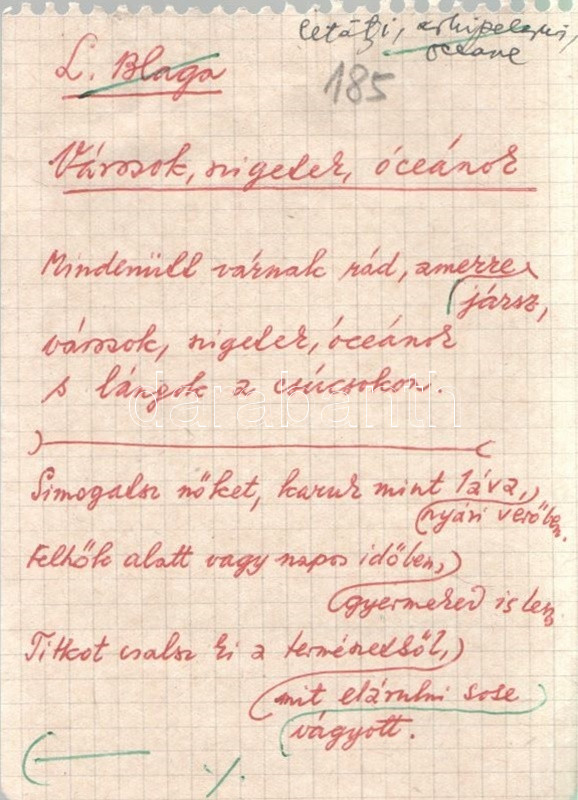 cetăți, arhipelaguri,
oceane
L. Blaga
185
Városok, szigetek, óceánok
Mindenütt várnak rád, amerre
jársz,
városok, szigetek, óceánok
s lángok a csúcsokon.
Simogatsz nőket, karuk mint láva,
nyári verőben.
Felhők alatt vagy napos időben,
gyermeked is lesz
Titkot csalsz ki a természetből,
mit elárulni sose
vágyott.
darabanth